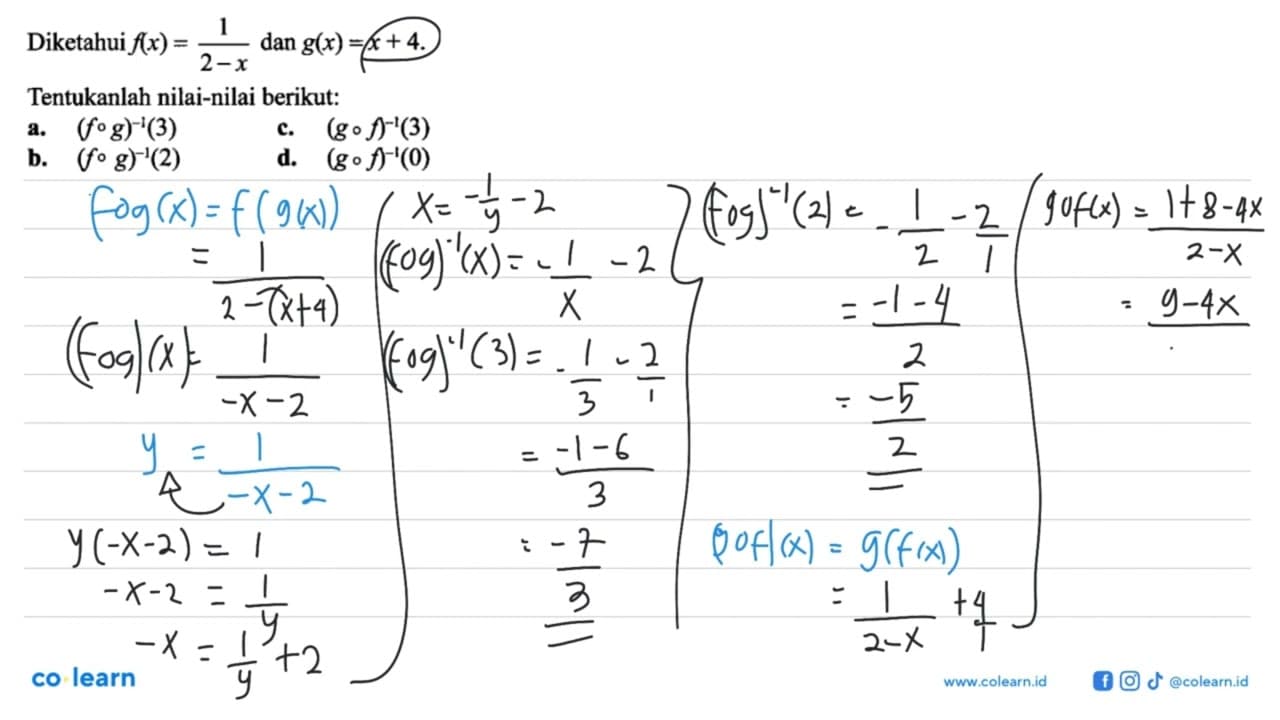 Diketahui f(x) = 1/(2 − x) dan g(x) = x + 4.
Tentukanlah nilai-nilai berikut:
a. (f ∘ g)⁻¹(3) c. (g ∘ f)⁻¹(3)
b. (f ∘ g)⁻¹(2) d. (g ∘ f)⁻¹(0)
fog(x) = f(g(x))
= 1/(2-(x+4))
(fog)(x) = 1/(-x-2)
y = 1/(-x-2)
y(-x-2) = 1
-x-2 = 1/y
-x = 1/y + 2
x = -1/y - 2
(fog)⁻¹(x) = -1/x - 2
(fog)⁻¹(3) = -1/3 - 2/1
= (-1-6)/3
= -7/3
(fog)⁻¹(2) = -1/2 - 2/1
= (-1-4)/2
= -5/2
gof(x) = g(f(x))
= 1/(2-x) + 4/1
gof(x) = (1+8-4x)/(2-x)
= 9-4x
co·learn
www.colearn.id
@colearn.id